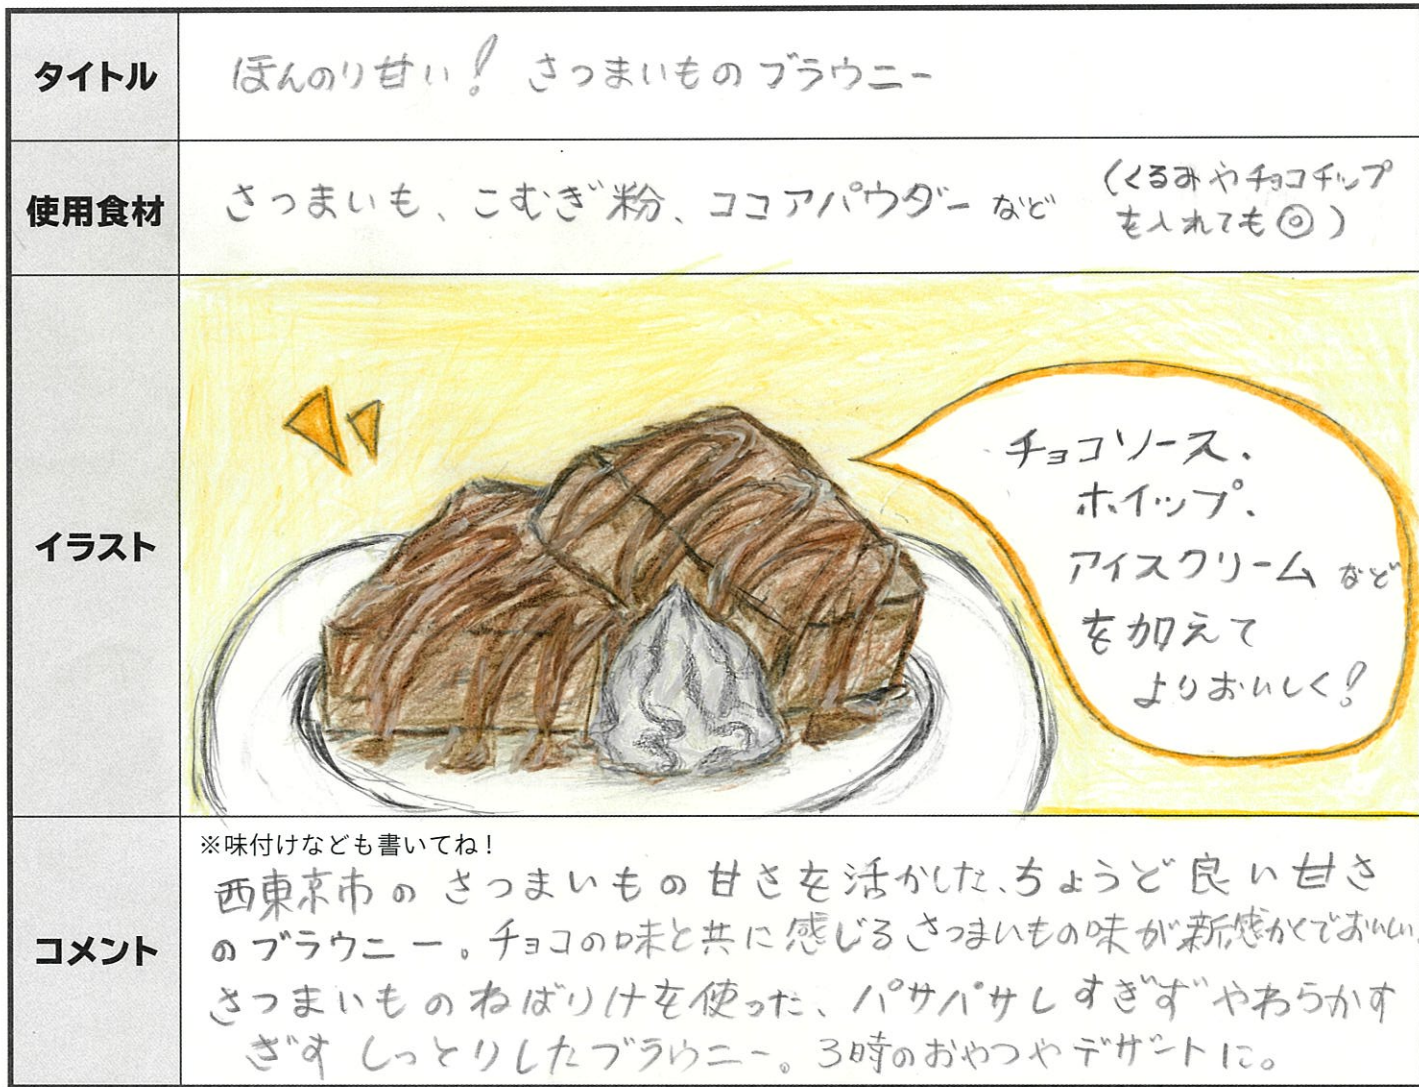 タイトル
ほんのり甘い！ さつまいものブラウニー
使用食材
さつまいも、こむぎ粉、ココアパウダー など
(くるみやチョコチップ
を入れても◎)
イラスト
チョコソース、
ホイップ、
アイスクリーム など
を加えて
よりおいしく！
コメント
※味付けなども書いてね！
西東京市のさつまいもの甘さを活かした、ちょうど良い甘さ
のブラウニー。チョコの味と共に感じるさつまいもの味が新感かくでおいしい。
さつまいものねばりけを使った、パサパサしすぎずやわらかす
ぎず しっとりしたブラウニー。3時のおやつやデザートに。